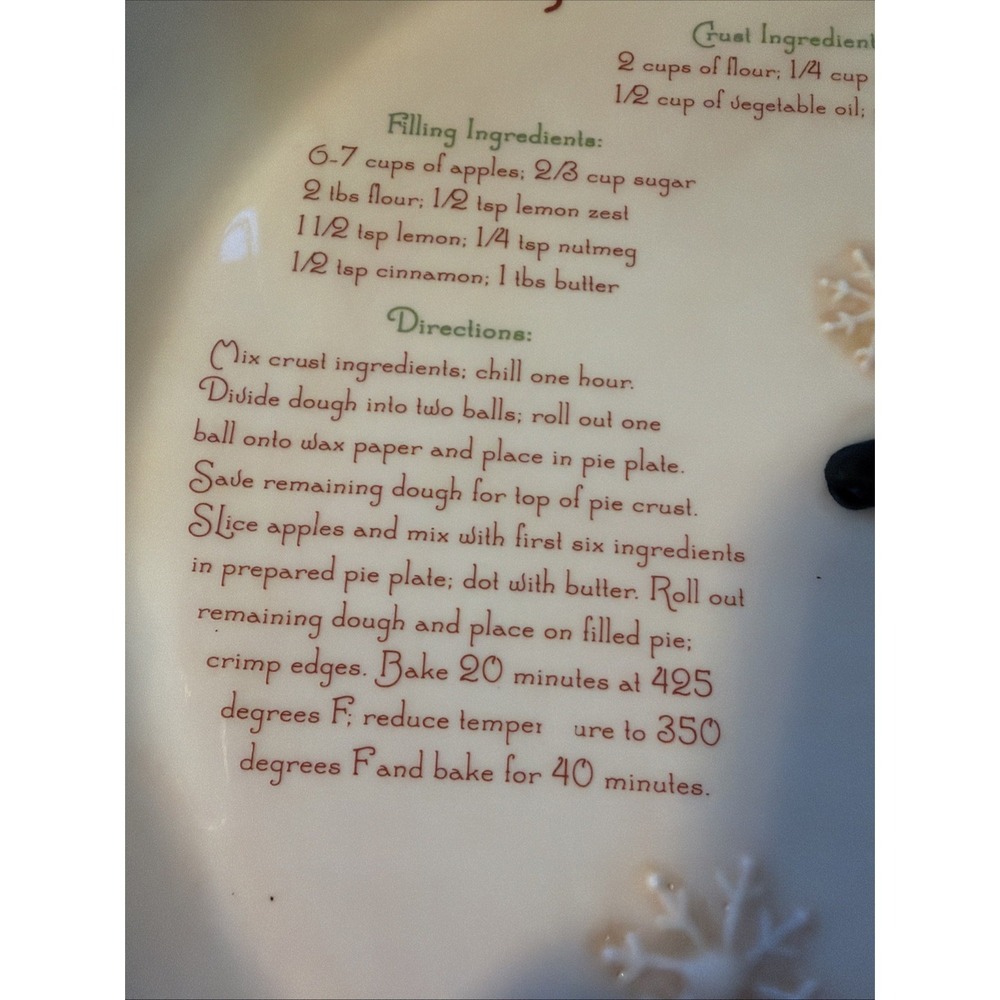 Crust Ingredient
2 cups of flour; 1/4 cup
1/2 cup of vegetable oil;
Filling Ingredients:
6-7 cups of apples; 2/3 cup sugar
2 tbs flour; 1/2 tsp lemon zest
1 1/2 tsp lemon; 1/4 tsp nutmeg
1/2 tsp cinnamon; 1 tbs butter
Directions:
Mix crust ingredients; chill one hour.
Divide dough into two balls; roll out one
ball onto wax paper and place in pie plate.
Save remaining dough for top of pie crust.
SLice apples and mix with first six ingredients
in prepared pie plate; dot with butter. Roll out
remaining dough and place on filled pie;
crimp edges. Bake 20 minutes at 425
degrees F; reduce temper ure to 350
degrees F and bake for 40 minutes.